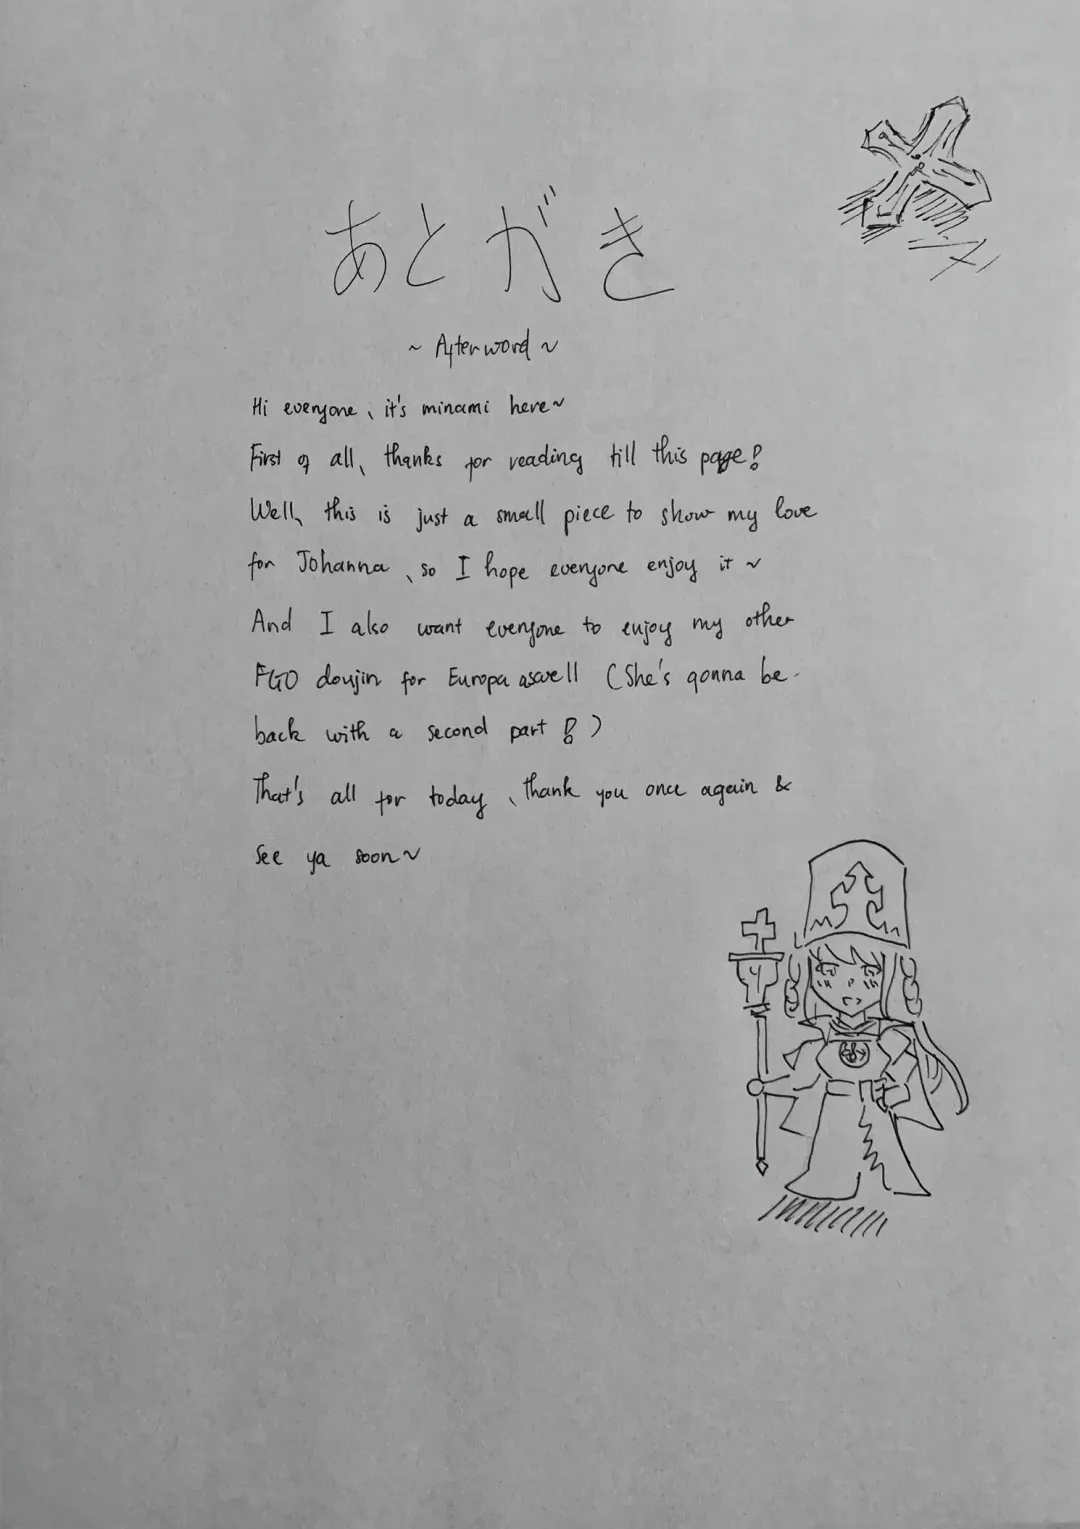 あとがき
~ Afterword ~
Hi everyone、it's minami here~
First of all、thanks for reading till this page!
Well、this is just a small piece to show my love
for Johanna、so I hope everyone enjoy it ~
And I also want everyone to enjoy my other
FGO doujin for Europa aswell (She's gonna be
back with a second part!)
That's all for today、thank you once again &
See ya soon~